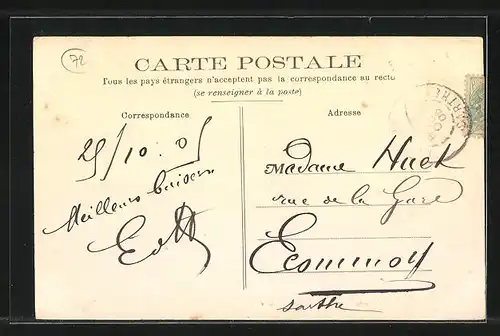 72
CARTE POSTALE
Tous les pays étrangers n'acceptent pas la correspondance au recto
(se renseigner à la poste)
Correspondance
25/10.05
Meilleurs baisers
Adresse
Madame Huet
rue de la Gare
Ecommoy
Sarthe
SARTHE